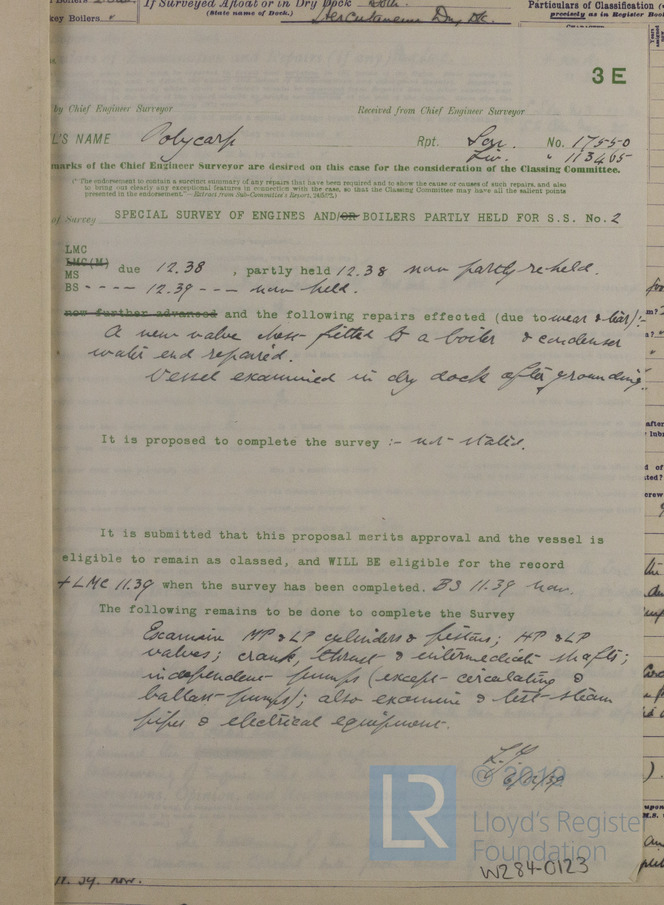 If Surveyed Afloat or in Dry Dock
(State name of Dock.)
Particulars of Classification
precisely as in Register Boo
key Boilers "
3 E
by Chief Engineer Surveyor
Received from Chief Engineer Surveyor
L'S NAME Polycarp Rpt. Lon. No. 17550
Liv. " 113465
marks of the Chief Engineer Surveyor are desired on this case for the consideration of the Classing Committee.
(" The endorsement to contain a succinct summary of any repairs that have been required and to show the cause or causes of such repairs, and also
to bring out clearly any exceptional features in connection with the case, so that the Classing Committee may have all the salient points
presented in the endorsement."—Extract from Sub-Committee's Report,
of Survey SPECIAL SURVEY OF ENGINES AND/OR BOILERS PARTLY HELD FOR S.S. No. 2
LMC
LMC(M)
MS due 12.38 , partly held 12.38 now partly reheld.
BS - - - - 12.39 - - - now held.
now further advanced and the following repairs effected (due to wear & tear):-
A new valve chest fitted to a boiler & condenser
water end repaired.
Vessel examined in dry dock after grounding.
It is proposed to complete the survey :- not stated.
It is submitted that this proposal merits approval and the vessel is
eligible to remain as classed, and WILL BE eligible for the record
+LMC 11.39 when the survey has been completed. BS 11.39 now.
The following remains to be done to complete the Survey
Examine MP & LP cylinders & pistons; HP & LP
valves; crank, thrust & intermediate shafts;
independent pumps (except circulating &
ballast pumps); also examine & test steam
pipes & electrical equipment.
© 2019
LR
Lloyd's Register
Foundation
W284-0123
now.